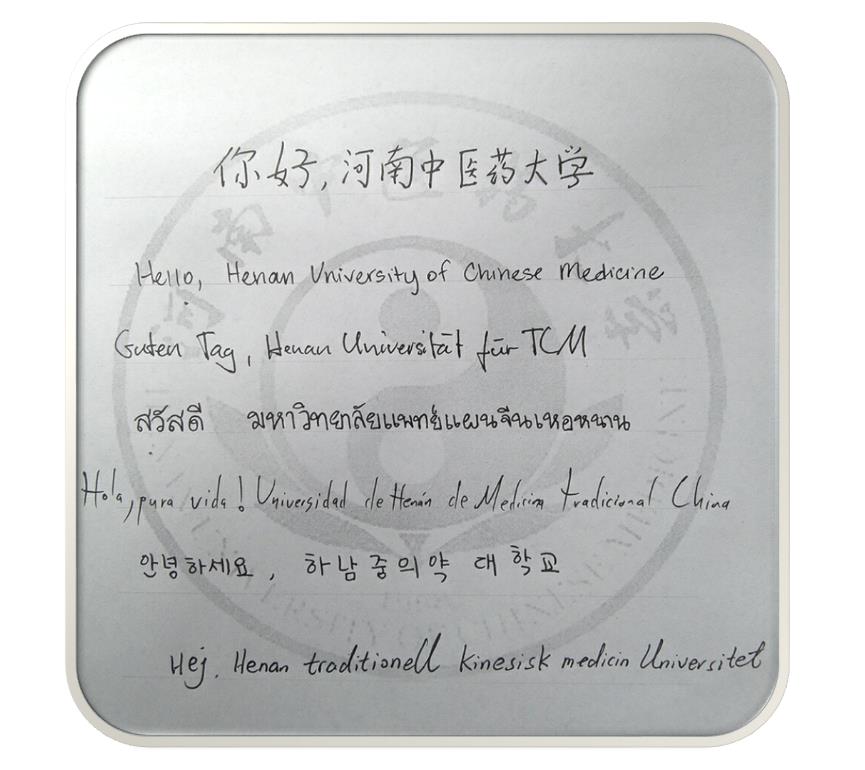 你好,河南中医药大学
Hello, Henan University of Chinese Medicine
Guten Tag, Henan Universität für TCM
สวัสดี มหาวิทยาลัยแพทย์แผนจีนเหอหนาน
Hola, pura vida! Universidad de Henán de Medicina tradicional China
안녕하세요, 하남중의약 대학교
Hej. Henan traditionell kinesisk medicin Universitet